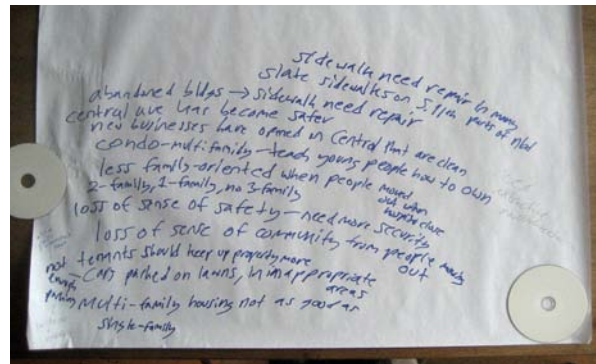 sidewalk need repair in many
slate sidewalks on S. 11th parts of nbd
abandoned bldgs → sidewalk need repair
central ave has become safer
new businesses have opened in Central that are clean
condo-multifamily - teach young people how to own
less family-oriented when people moved
out when
hospital close
2-family, 1-family, no 3-family
loss of sense of safety - need more security
loss of sense of community from people moving
out
tenants should keep up property more
not
enough
parking
- cars parked on lawns, in inappropriate
areas
multi-family housing not as good as
single-family